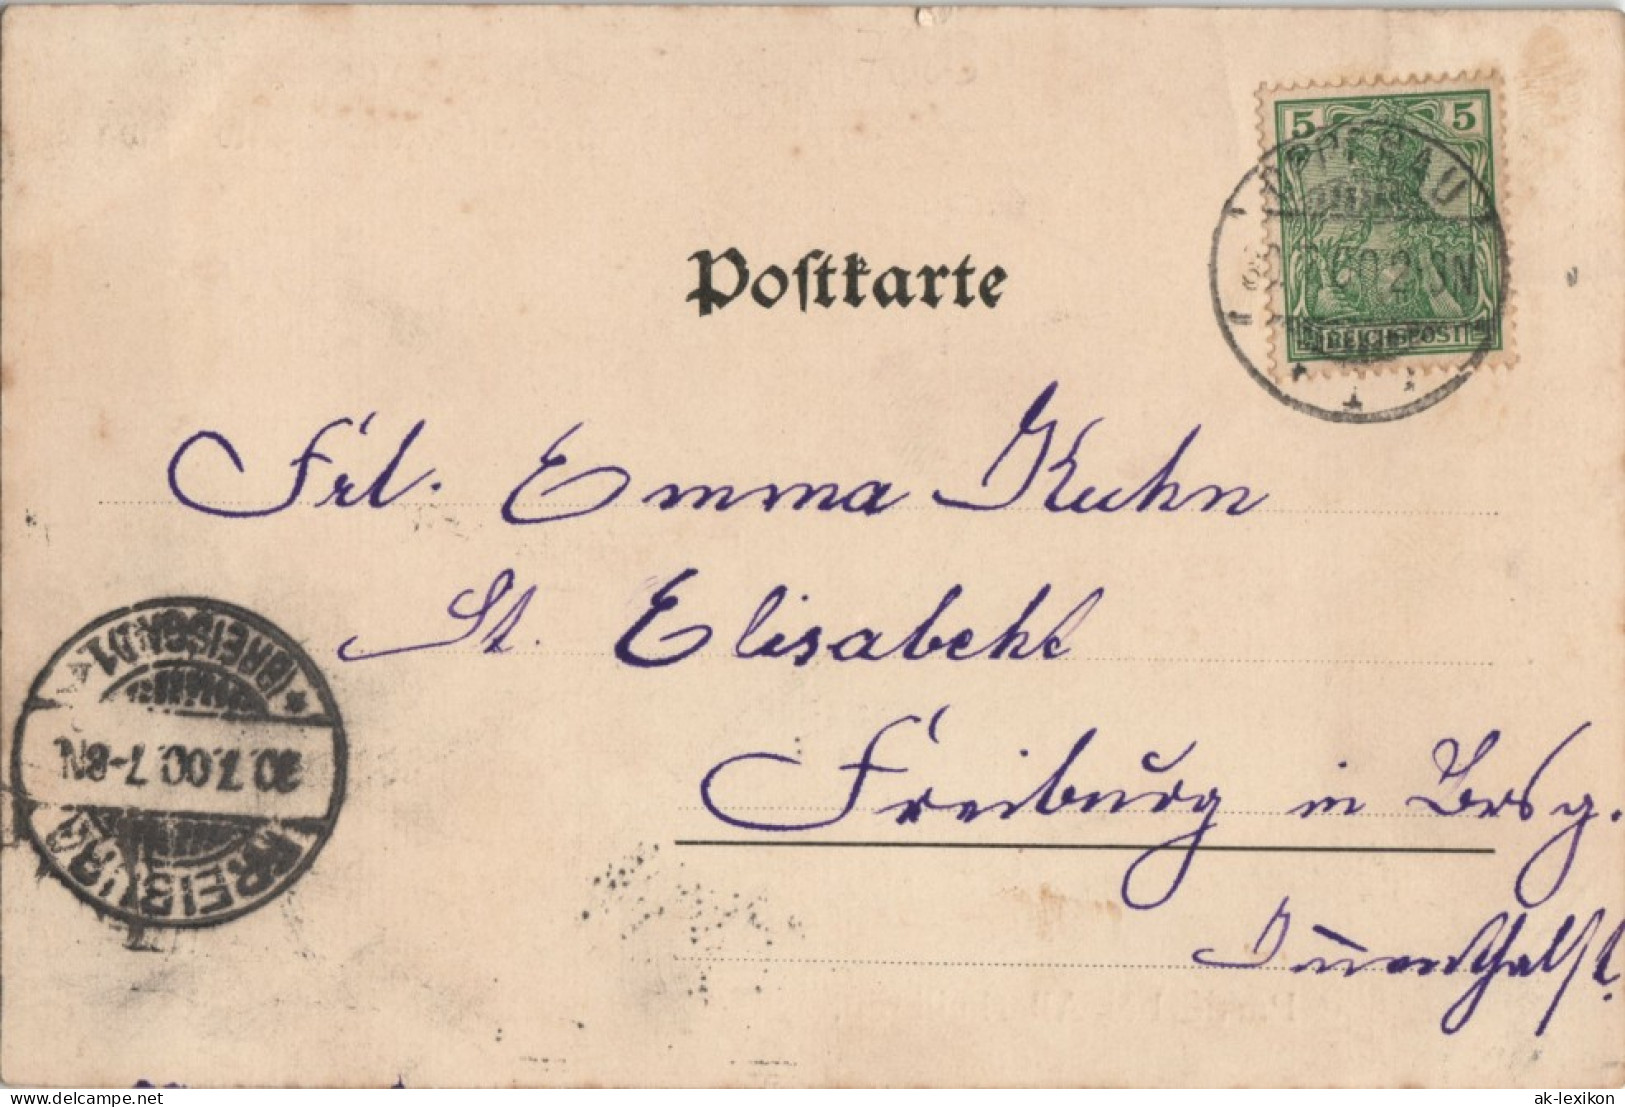 5 5
REICHSPOST
Postkarte
Frl. Emma Kuhn
St. Elisabeht
Freiburg in Brsg.
FREIBURG
20.7.00.7-8N.
(BREISGAU) 1
delcampe.net
ak-lexikon